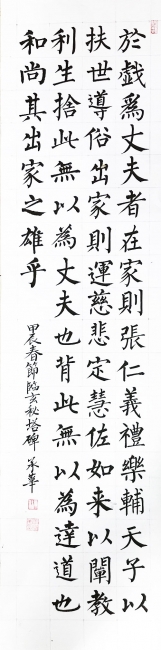 於戲爲丈夫者在家則張仁義禮樂輔天子以
扶世導俗出家則運慈悲定慧佐如來以闡教
利生捨此無以為丈夫也背此無以為達道也
和尚其出家之雄乎
甲辰春節臨玄秘塔碑